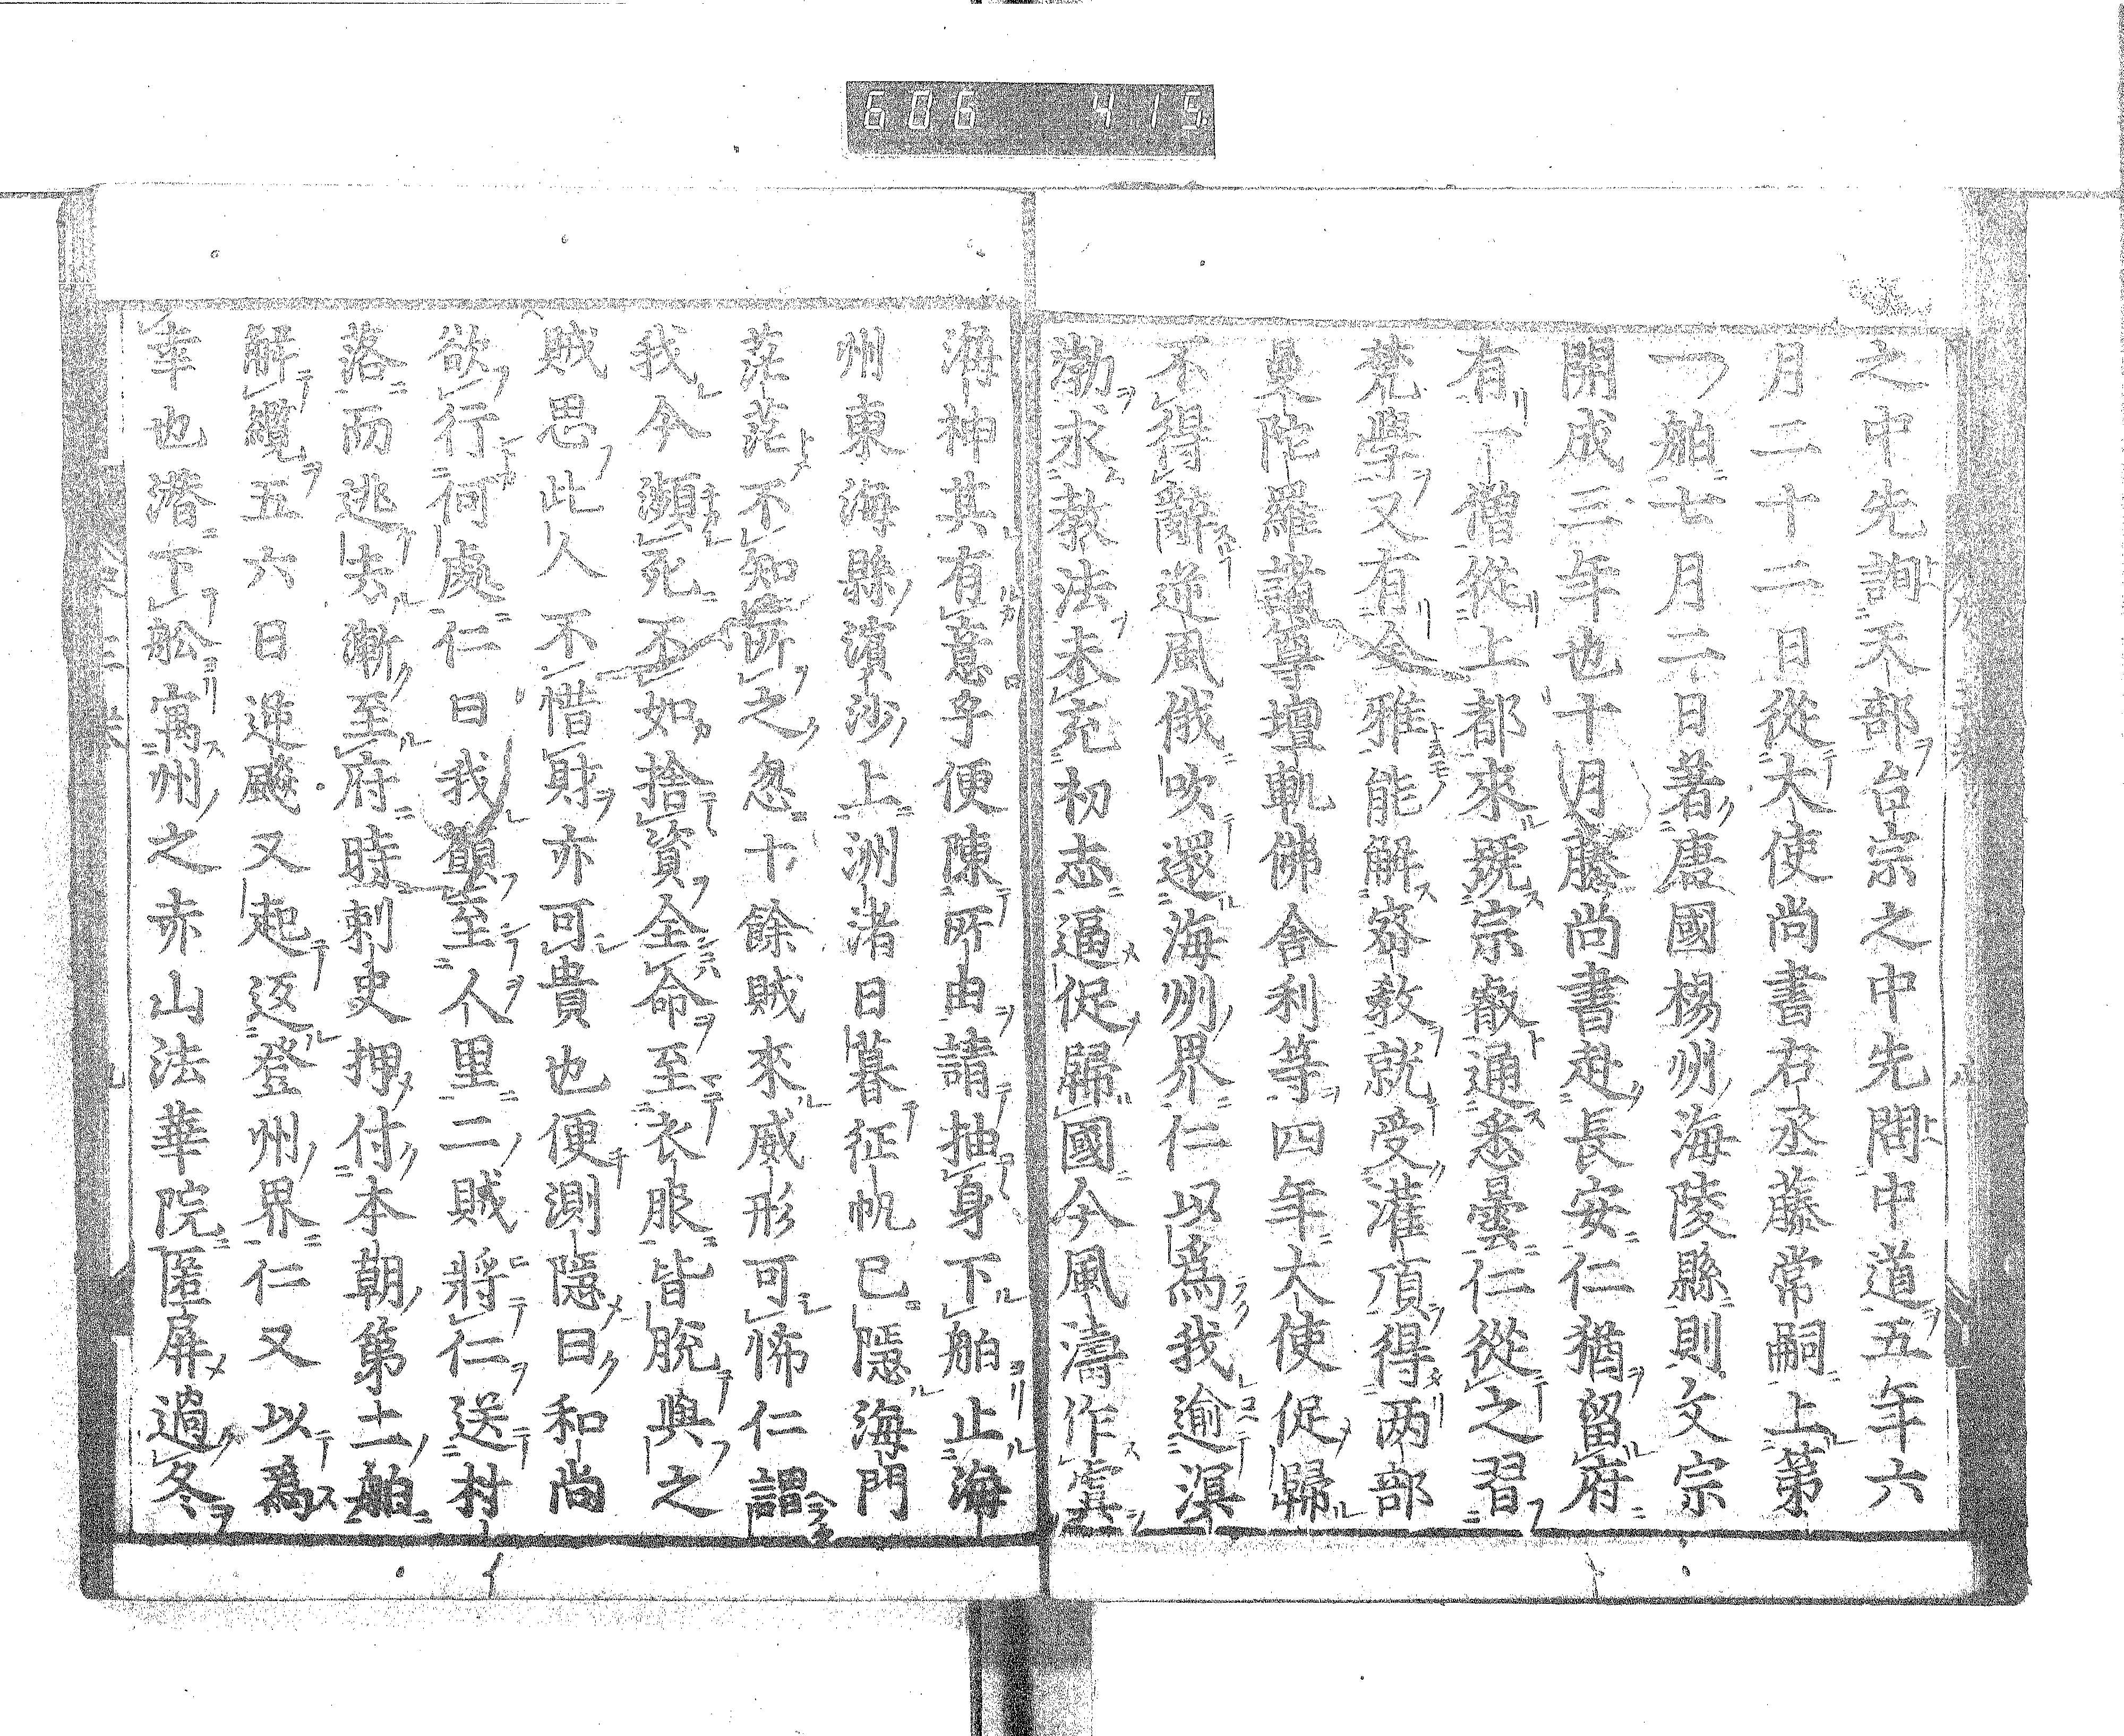 606 415
之中先詢天部台宗之中先問中道五年六
月二十二日從大使尚書右丞藤常嗣上第
一舶七月二日著唐國楊州海陵縣則文宗
開成三年也十月藤尚書赴長安仁猶留府
有一僧從上都來號宗叡通悉曇仁從之習
梵學又有全雅能解密教就受灌頂得两部
曼陀羅諸尊壇軌佛舍利等四年大使促歸
不得辭逆風俄吹還海州界仁以爲我逾溟
渤求教法未充初志逼促歸國今風濤作寞
海神其有意乎便陳所由請抽身下舶止海
州東海縣濱沙上洲渚日暮征帆已隱海門
茫茫不知所之忽十餘賊來威形可怖仁謂
我今瀕死不如捨資全命至衣服皆脫與之
賊思此人不惜財亦可貴也便測隱曰和尚
欲行何處仁曰我願至人里二賊將仁送村
落而逃去漸至府時刺史押付本朝第二舶
解纜五六日逆飈又起返登州界仁又以爲
幸也潜下舩寓州之赤山法華院匿屏過冬